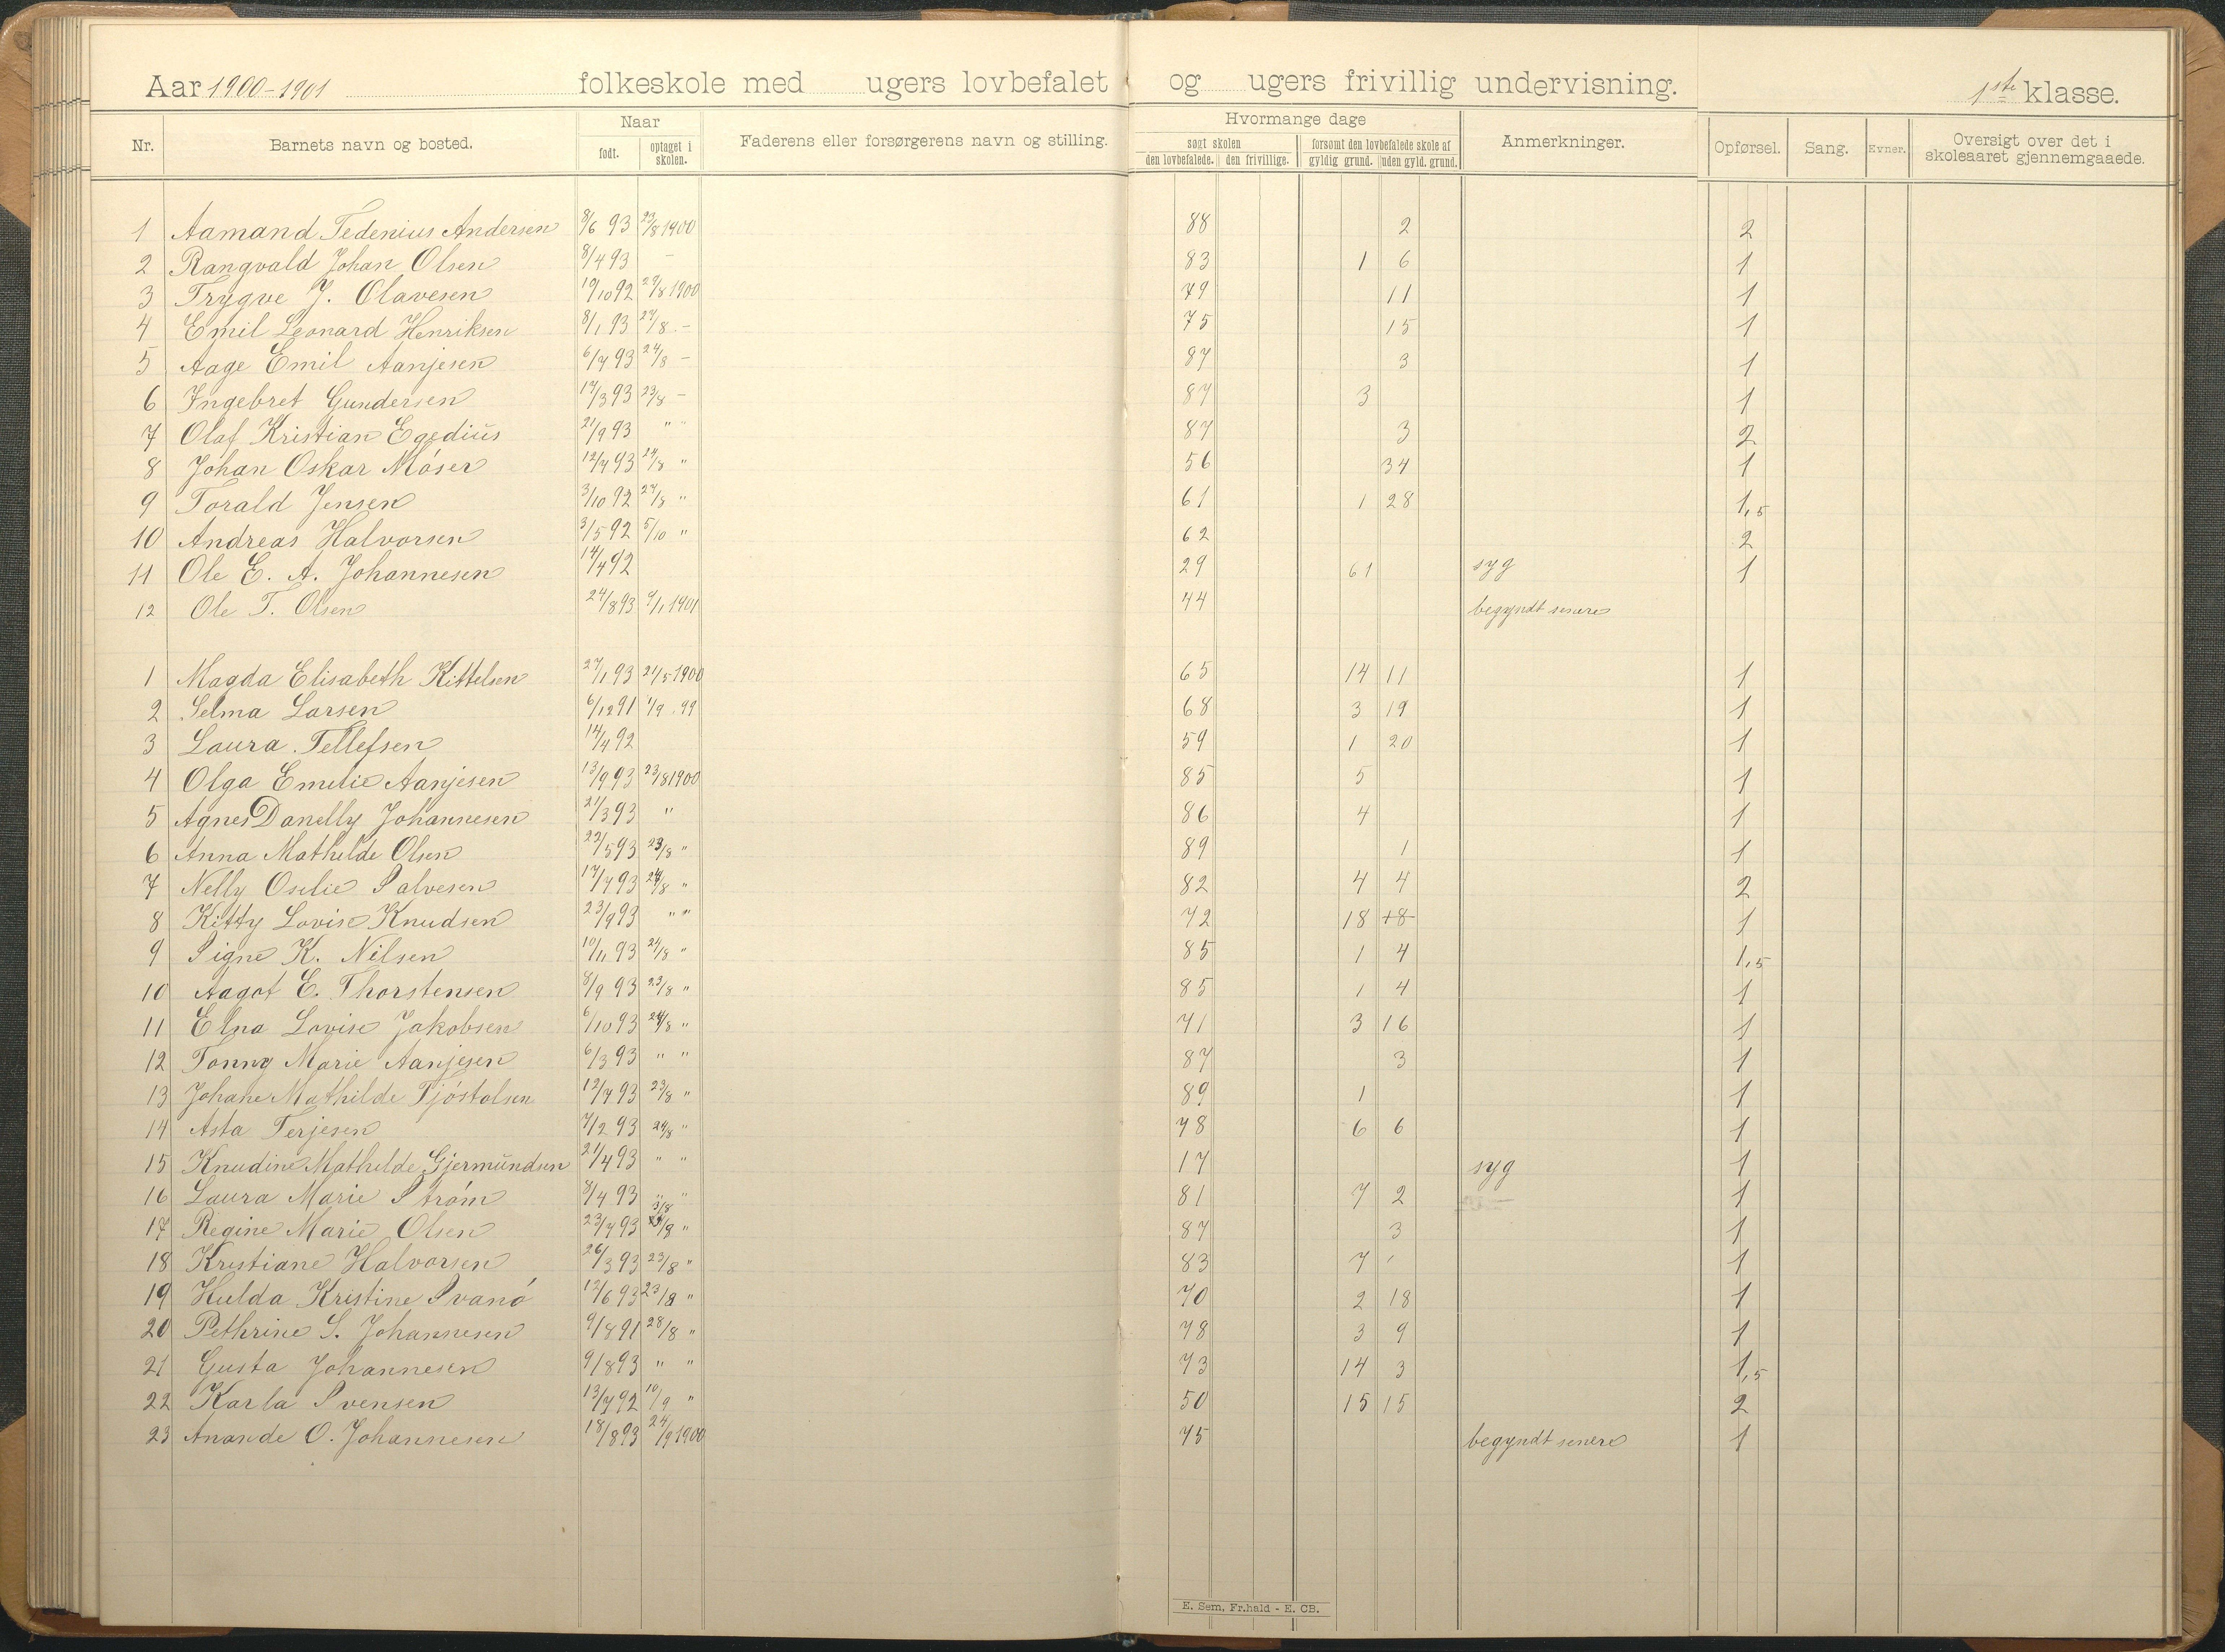 Aar 1900-1901 folkeskole med ugers lovbefalet og ugers frivillig undervisning. 1ste klasse.
Nr. Barnets navn og bosted. Naar født. optaget i skolen. Faderens eller forsørgerens navn og stilling. Hvormange dage søgt skolen den lovbefalede. den frivillige. forsømt den lovbefalede skole af gyldig grund. uden gyld. grund. Anmerkninger. Opførsel. Sang. Evner. Oversigt over det i skoleaaret gjennemgaaede.
1 Aamand Tedenius Andersen 8/6 93 23/8 1900 88 2 2
2 Rangvald Johan Olsen 8/4 93 – 83 1 6 1
3 Trygve J. Olavesen 19/10 92 27/8 1900 79 11 1
4 Emil Leonard Henriksen 8/1 93 24/8 – 75 15 1
5 Aage Emil Aanjesen 6/7 93 24/8 – 87 3 1
6 Ingebret Gundersen 17/3 93 23/8 – 87 3 1
7 Olaf Kristian Egedius 21/9 93 " " 87 3 2
8 Johan Oskar Móser 12/7 93 24/8 " 56 34 1
9 Torald Jensen 3/10 92 27/8 " 61 1 28 1,5
10 Andreas Halvorsen 3/5 92 5/10 " 62 2
11 Ole E. A. Johannesen 14/4 92 29 61 syg 1
12 Ole T. Olsen 24/8 93 /1 1901 44 begyndt senere
1 Magda Elisabeth Kittelsen 27/1 93 21/5 1900 65 14 11 1
2 Selma Larsen 6/12 91 /9 . 99 68 3 19 1
3 Laura Tellefsen 14/4 92 59 1 20 1
4 Olga Emelie Aanjesen 13/9 93 23/8 1900 85 5 1
5 Agnes Danelly Johannesen 21/3 93 " 86 4 1
6 Anna Mathilde Olsen 22/5 93 23/8 " 89 1 1
7 Nelly Oselie Salvesen 17/7 93 24/8 " 82 4 4 2
8 Kitty Lovise Knudsen 23/9 93 " " 72 18 1
9 Signe K. Nilsen 10/11 93 24/8 " 85 1 4 1,5
10 Aagot E. Thorstensen 8/9 93 23/8 " 85 1 4 1
11 Elna Lovise Jakobsen 6/10 93 24/8 " 71 3 16 1
12 Tonny Marie Aanjesen 6/3 93 " " 87 3 1
13 Johane Mathilde Tjóstolsen 12/7 93 23/8 " 89 1 1
14 Asta Terjesen 7/2 93 24/8 " 78 6 6 1
15 Knudine Mathilde Gjermundsen 21/4 93 " " 17 syg 1
16 Laura Marie Stróm 8/4 93 " " 81 7 2 1
17 Regine Marie Olsen 23/7 93 3/8 " 87 3 1
18 Kristiane Halvorsen 26/3 93 23/8 " 83 7 1
19 Hulda Kristine Svanó 12/6 93 23/8 " 70 2 18 1
20 Pethrine S. Johannesen 9/8 91 28/8 " 78 3 9 1
21 Gusta Johannesen 9/8 93 " " 73 14 3 1,5
22 Karla Svensen 13/7 92 10/9 " 50 15 15 2
23 Anande O. Johannesen 18/8 93 24/9 1900 75 begyndt senere 1
E. Sem, Fr.hald - E. CB.